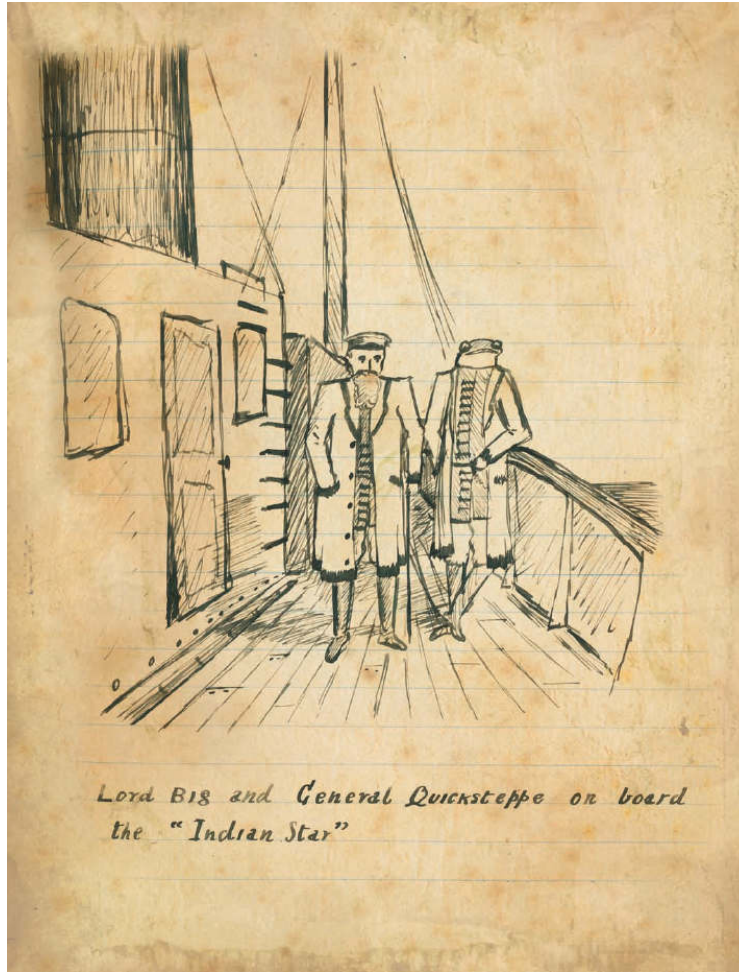 Lord Big and General Quicksteppe on board
the "Indian Star"